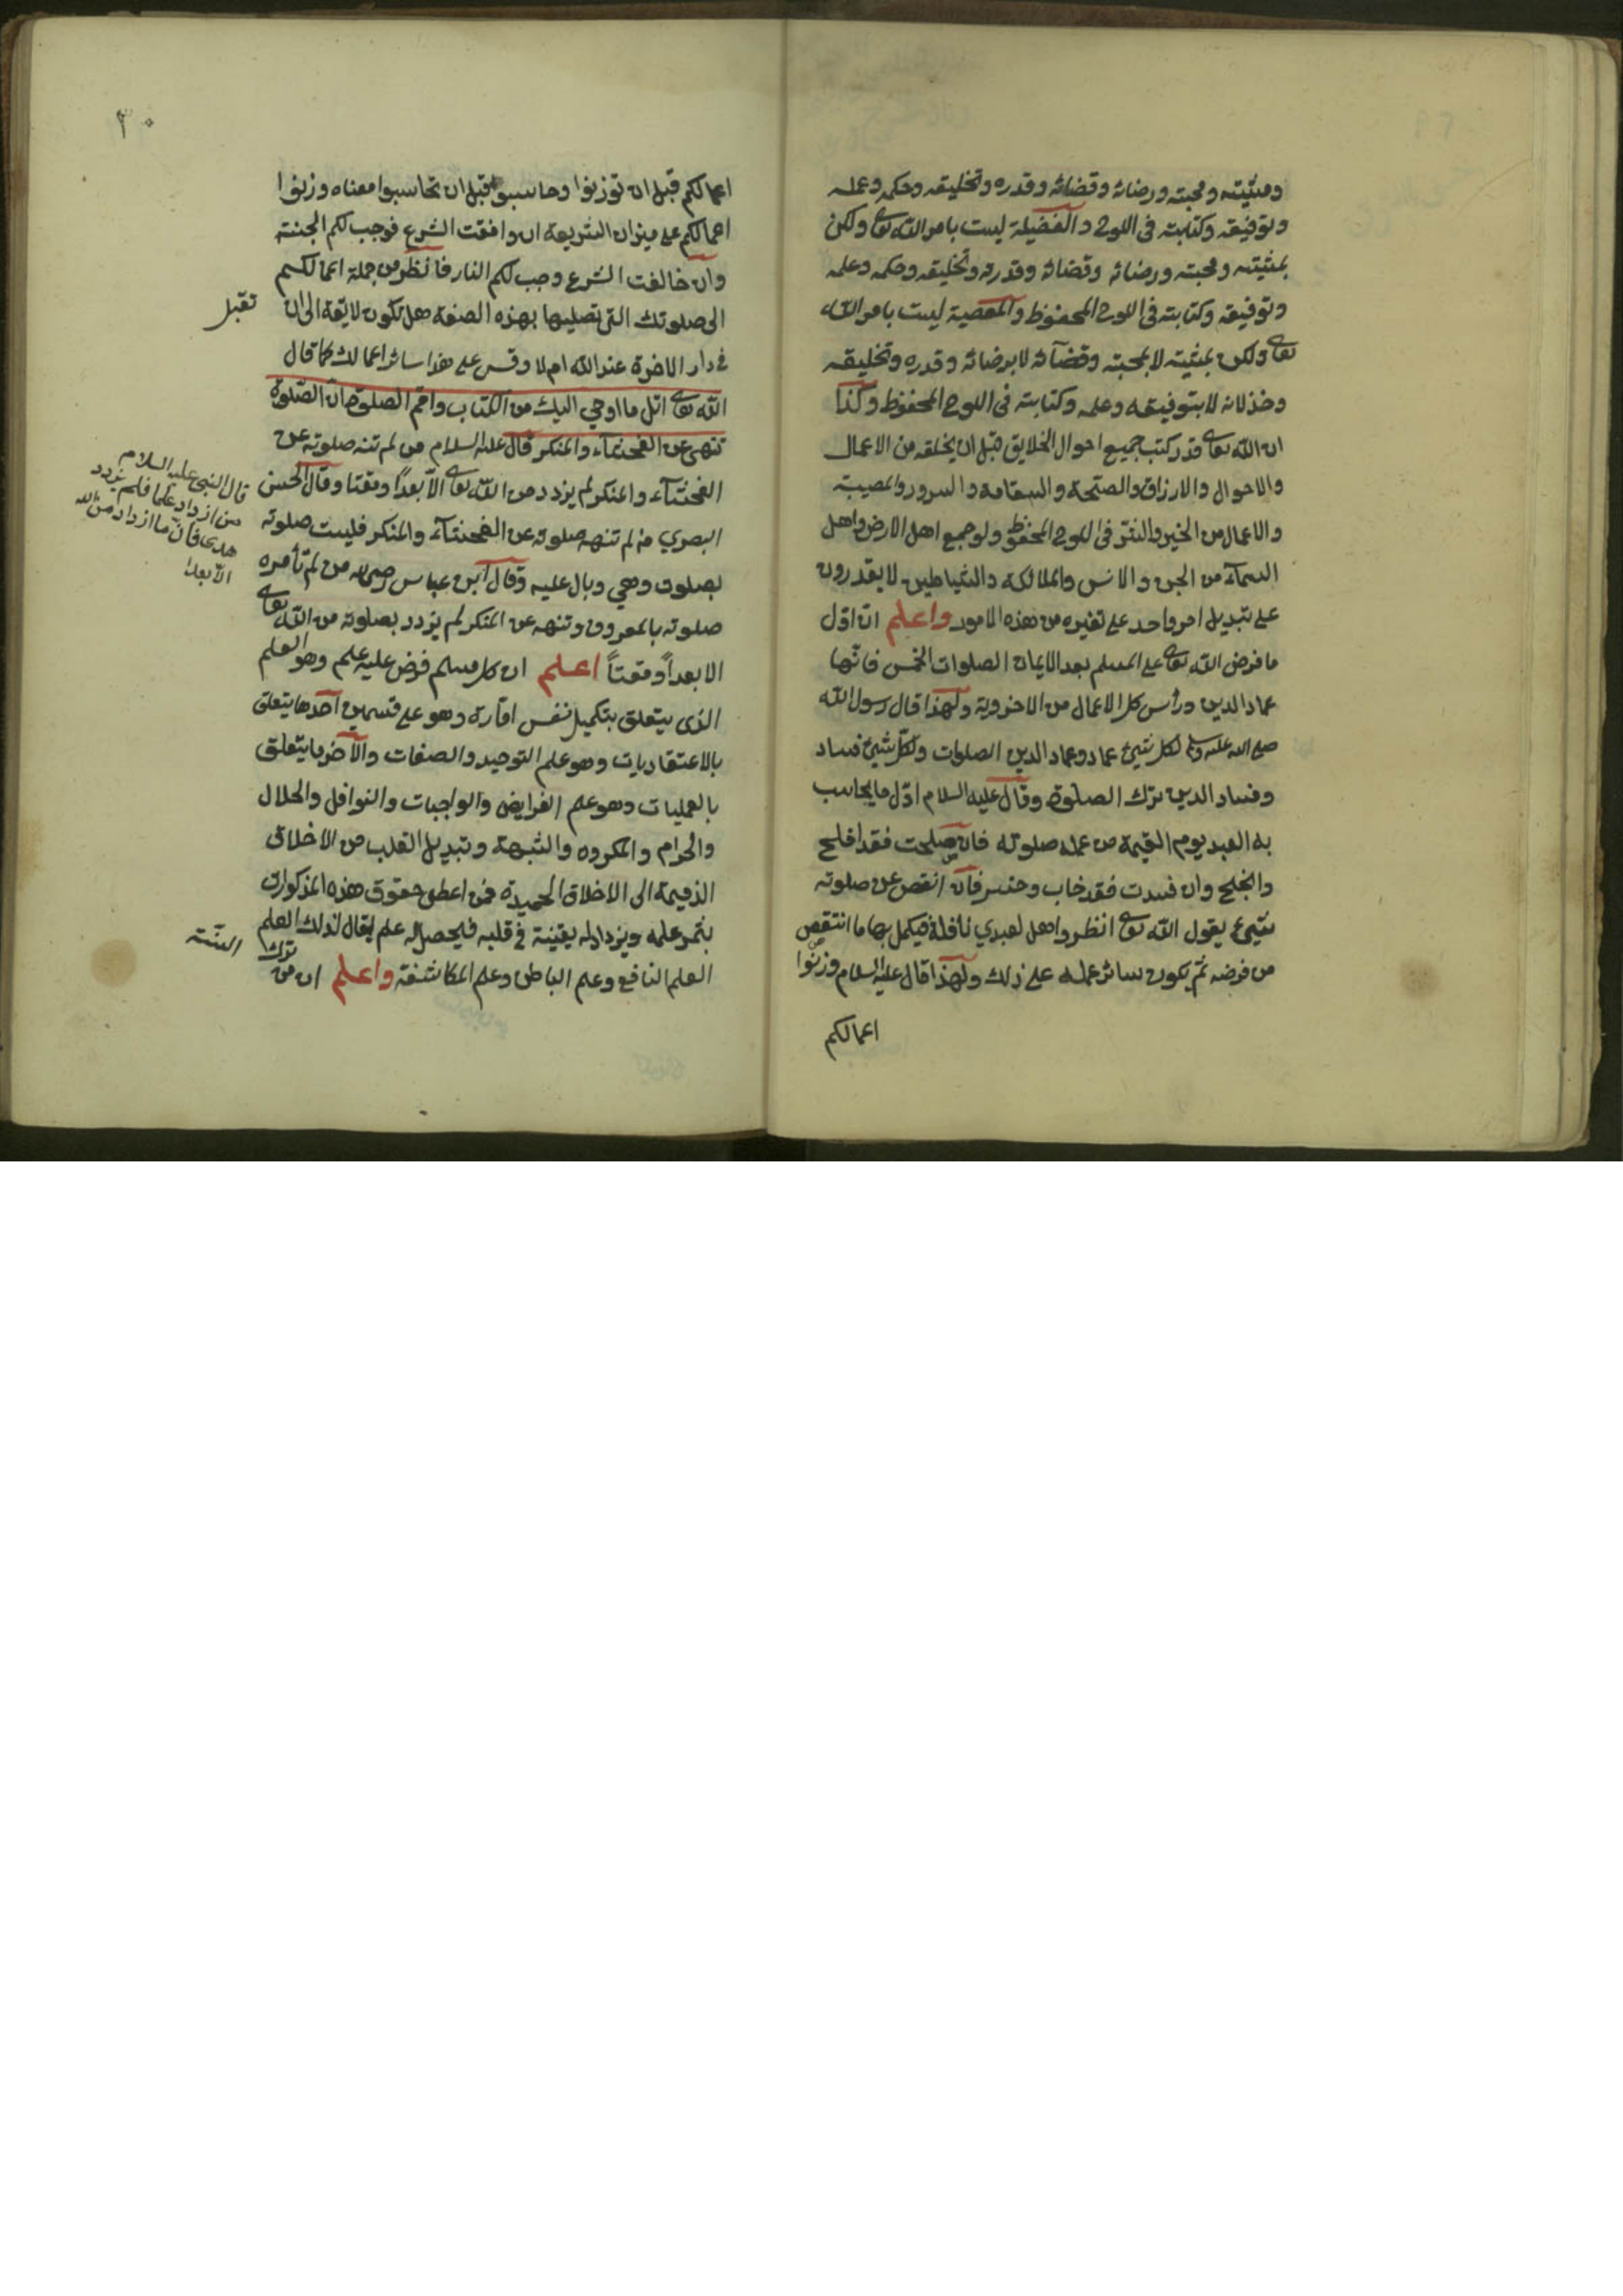 ومشيته ومحبته ورضائه وقضائه وقدره وتخليقه وحكمه وعلمه
وتوفيقه وكتابته فى اللوح والفضيلة ليست بامر الله تعالى ولكن
بمشيته ومحبته ورضائه وقضائه وقدرته وتخليقه وحكمه وعلمه
وتوفيقه وكتابته فى اللوح المحفوظ والمعصية ليست بامر الله
تعالى ولكن بمشيته لا بمحبته وقضآئه لا برضائه وقدره وتخليقه
وخذلانه لا بتوفيقه وعلمه وكتابته فى اللوح المحفوظ وكذا
ان الله تعالى قد كتب جميع احوال الخلايق قبل ان يخلقه من الاعمال
والاحوال والارزاق والصحّة والسقامة والسرور والمصيبة
والاعمال من الخير والشرّ فى اللوح المحفوظ ولو جميع اهل الارض واهل
السمآء من الجن والانس والملائكة والشياطين لا يقدرون
على تبديل امر واحد على تغيره من هذه الامور واعلم ان اوّل
ما فرض الله تعالى على المسلم بعد الايمان الصلوات الخمس فانّها
عماد الدين ورأس كل الاعمال من الاخروية ولهذا قال رسول الله
صلى الله عليه وسلم لكل شيئ عماد وعماد الدين الصلوات ولكلّ شيئ فساد
وفساد الدين ترك الصلوة وقال عليه السلام اوّل ما يحاسب
به العبد يوم القيمة من عمله صلوته فان صلحت فقد افلح
وانجح وان فسدت فقد خاب وخسر فان انتقص عن صلوته
شيئ يقول الله تعالى انظروا هل لعبدي نافلة فيكمل بها ما انتقص
من فرضه ثم يكون سائر عمله على ذلك ولهذا قال عليه السلام وزنوا
اعمالكم
٣٠
اعمالكم قبل ان توزنوا وحاسبوا قبل ان تحاسبوا معناه وزنوا
اعمالكم على ميزان الشريعة ان وافقت الشرع فوجب لكم الجنة
وان خالفت الشرع وجب لكم النار فانظر من جملة اعمالكم
الى صلوتك التى تصليها بهذه الصفة هل تكون لايقة الى ان
تقبل
فى دار الاخرة عند الله ام لا وقس على هذا سائر اعمالك كما قال
الله تعالى اتل ما اوحي اليك من الكتاب واقم الصلوة ان الصّلوة
تنهى عن الفحشآء والمنكر قال عليه السلام من لم تنه صلوته عن
الفحشآء والمنكر لم يزدد من الله تعالى الاّ بعداً ومقتا وقال الحسن
البصري من لم تنهه صلوته عن الفحشآء والمنكر فليست صلوته
بصلوت وهي وبال عليه وقال ابن عباس رضى الله من لم تأمره
صلوته بالمعروف وتنهه عن المنكر لم يزدد بصلوته من الله تعالى
الا بعداً ومقتاً اعلم ان كل مسلم فرض عليه علم وهو العلم
الذى يتعلق بتكميل نفس امّارة وهو على قسمين احدها يتعلق
بالاعتقاديات وهو علم التوحيد والصفات والآخر ما يتعلق
بالعمليات وهو علم الفرايض والواجبات والنوافل والحلال
والحرام والمكروه والشبهة وتبديل القلب من الاخلاق
الذميمة الى الاخلاق الحميدة فمن اعطى حقوق هذه المذكورات
بثمر علمه ويزداد له يقينة فى قلبه فيحصل له علم يقال لذلك العلم
العلم النافع وعلم الباطن وعلم المكاشفة واعلم ان من ترك
السنّة
قال النبى عليه السلام
من ازداد علما فلم يزدد
هدى فان ما ازداد من الله
الاّ بعدا